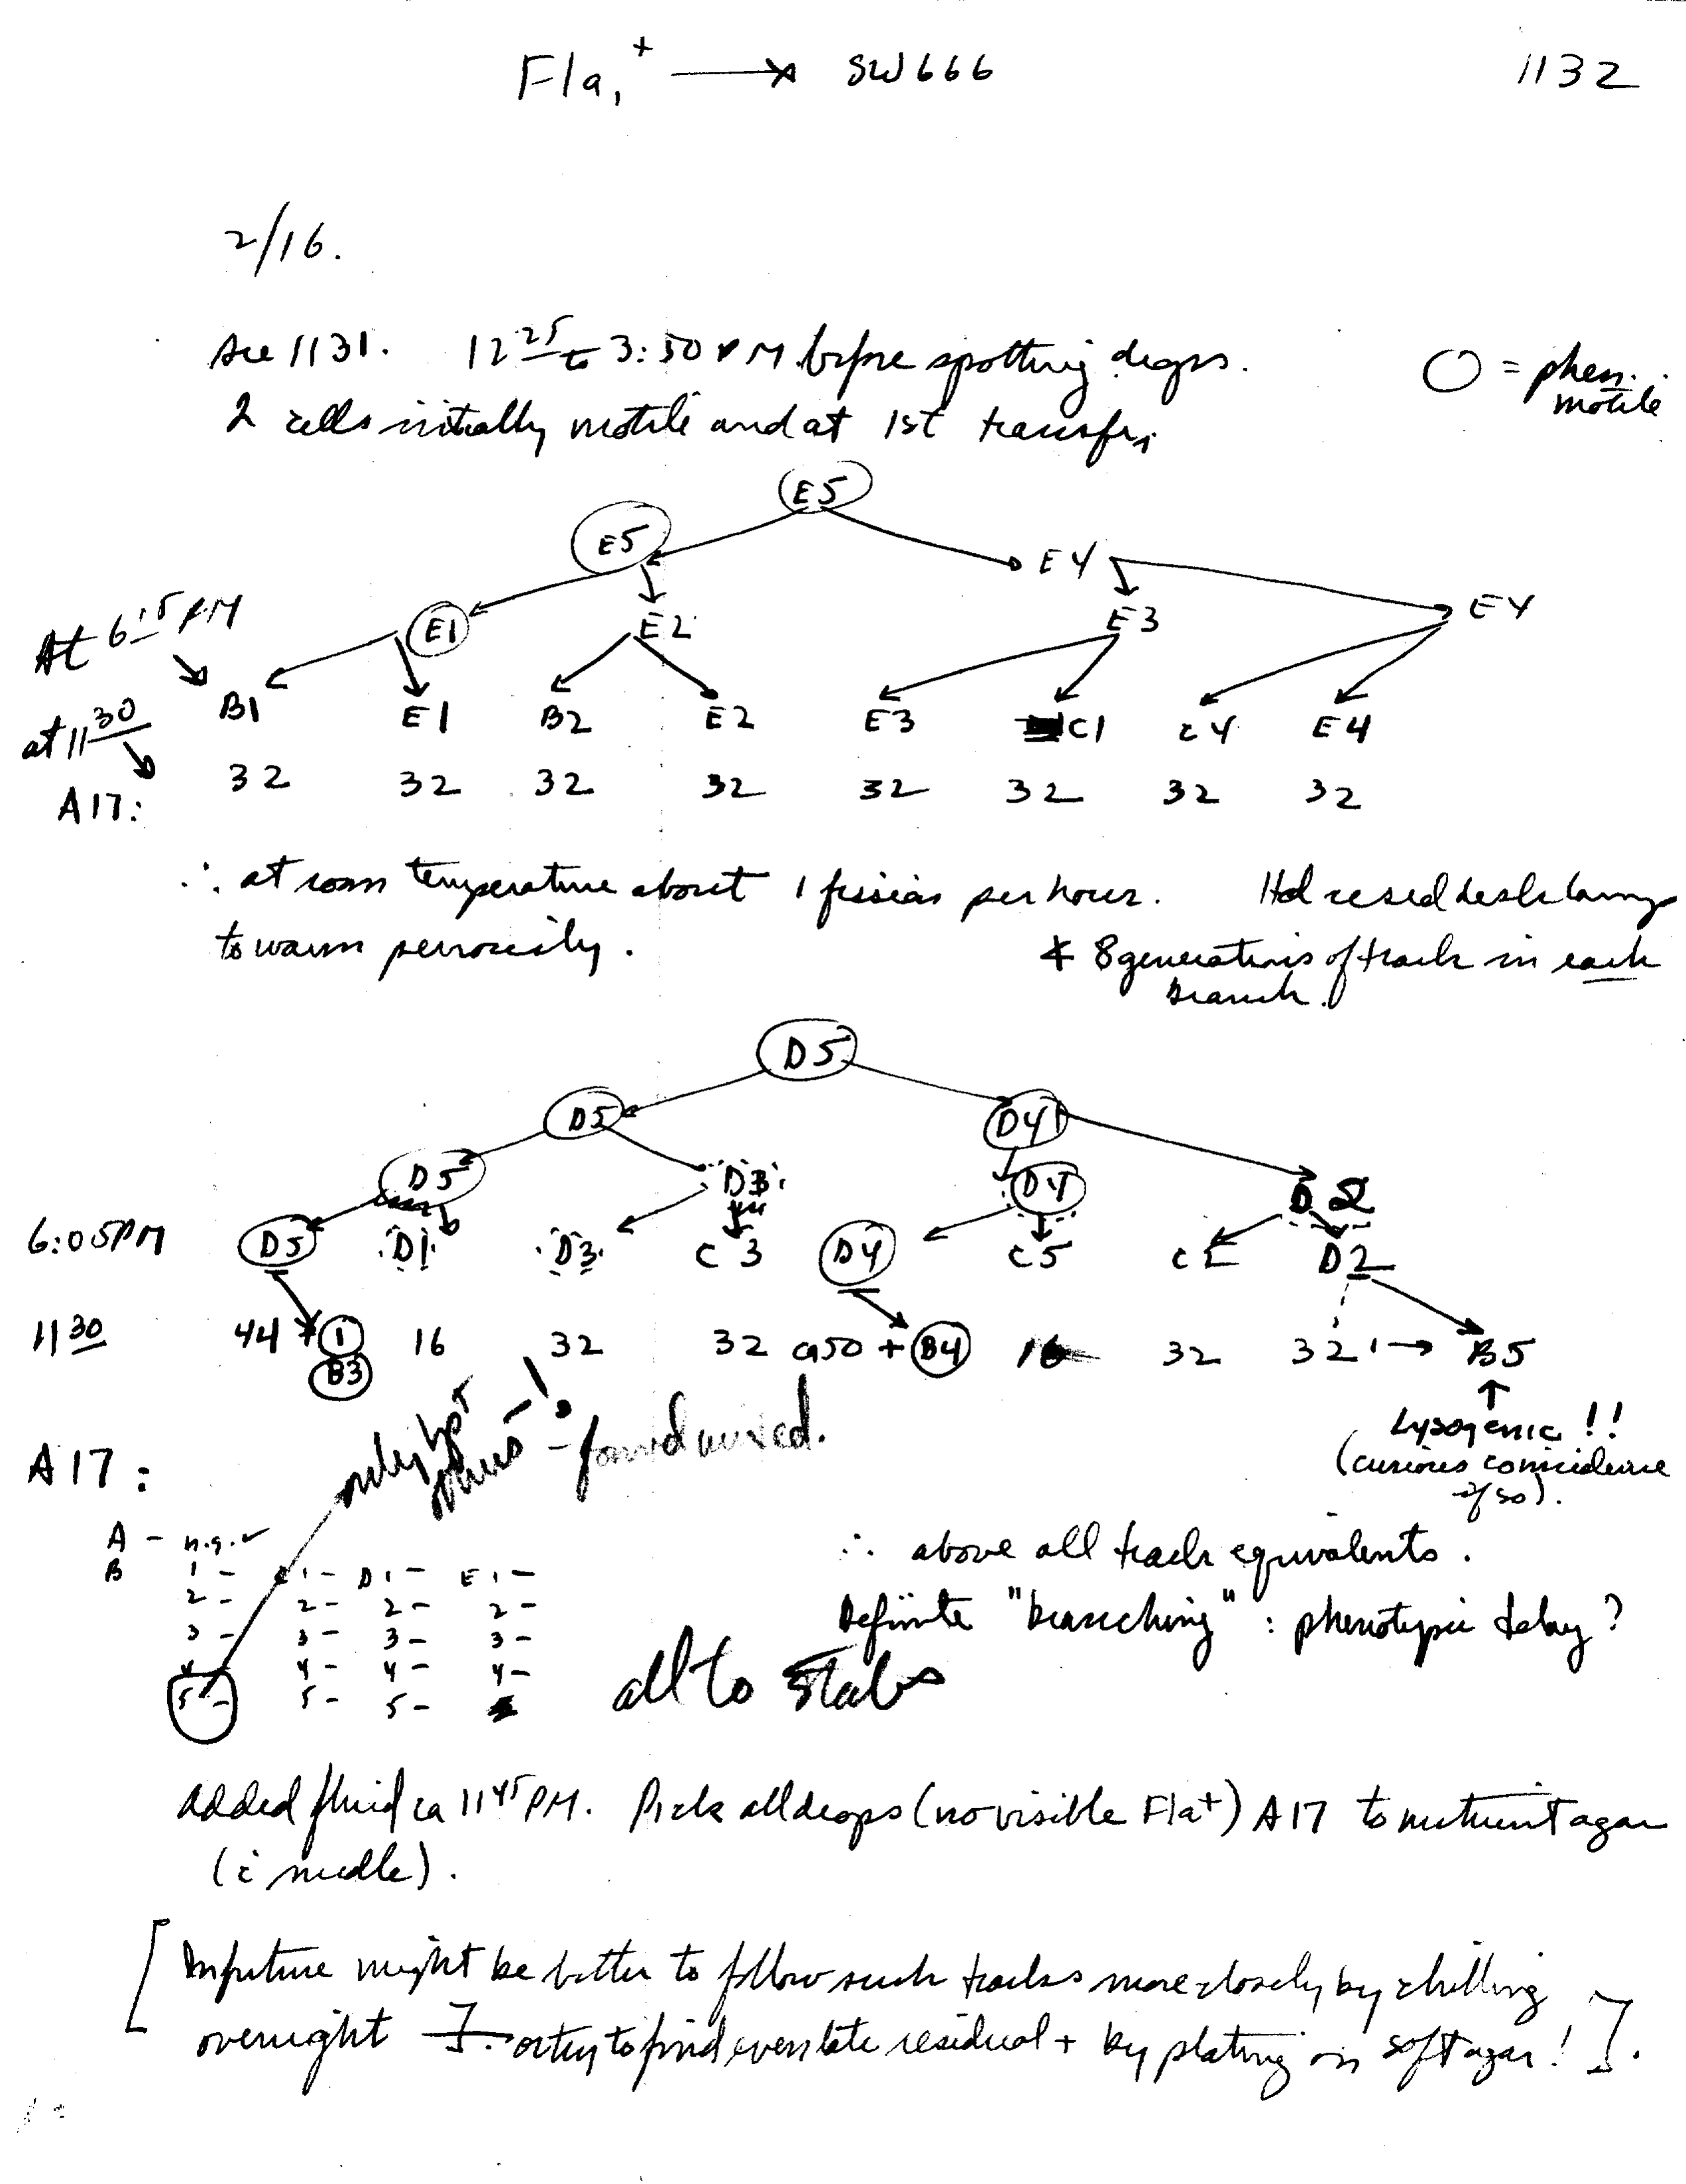 Fla₁⁺ ⟶x SW666 1132
2/16.
See 1131. 12²⁵ to 3:50 PM before spotting drops.
2 cells initially motile and at 1st transfer.
◯ = phen. motile
E5
E5 E4
E1 E2 E3 E4
At 6¹⁵ PM
B1 E1 B2 E2 E3 C1 C4 E4
at 11³⁰
32 32 32 32 32 32 32 32
A17:
∴ at room temperature about 1 fission per hour. Had used desk lamp
to warm previously.
* 8 generations of track in each
branch.
D5
D5 D4
D5 D3 D4 D2
6:05PM D5 D1 D3 C3 D4 C5 C2 D2
11³⁰ 44 + 1 16 32 32 ca50 + B4 16 32 32 1 → B5
B3
only Lp⁵
others - found mixed.
Lysogenic!!
(curious coincidence
if so).
A17:
A - n.g.
B 1 - C 1 - D 1 - E 1 -
2 - 2 - 2 - 2 -
3 - 3 - 3 - 3 -
4 4 - 4 - 4 -
5 - 5 - 5 -
∴ above all track equivalents.
Definite "branching": phenotypic delay?
all to stabs
Added fluid ca 11⁴⁵ PM. Pick all drops (no visible Fla+) A17 to nutrient agar
(c̄ needle).
[In future might be better to follow such tracks more closely by chilling
overnight or try to find even late residual + by plating on soft agar!].